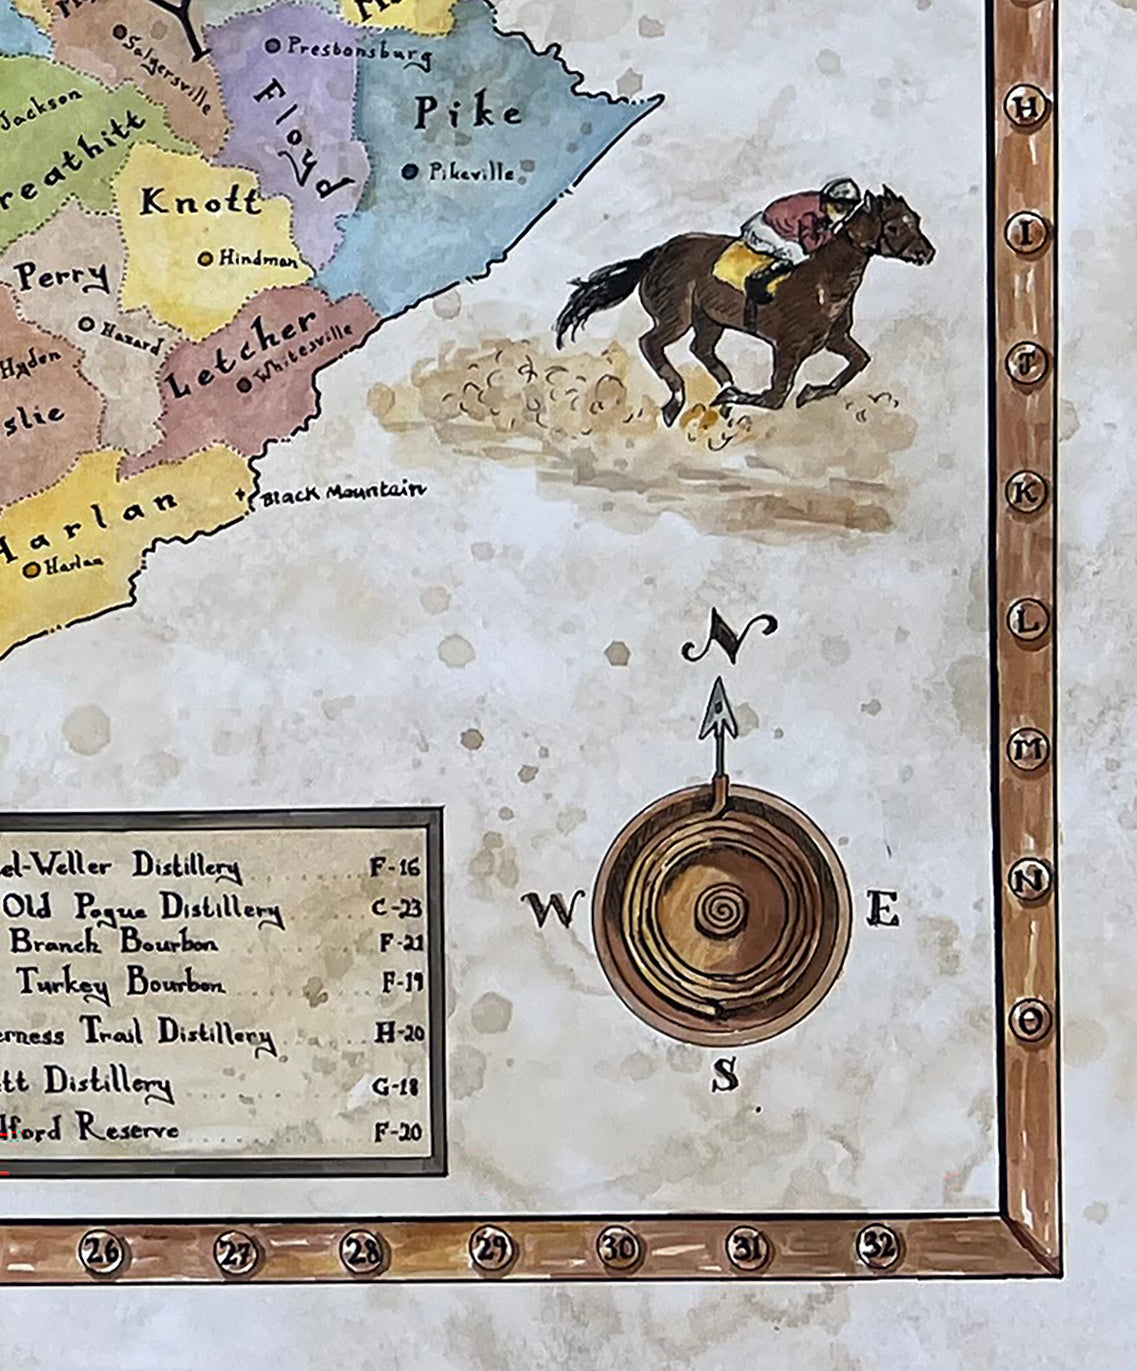 Salyersville
Prestonsburg
H
Jackson
Floyd
Pike
reathitt
Pikeville
Knott
I
Hindman
Perry
Hazard
Letcher
Whitesville
Hyden
J
slie
Harlan
Black Mountain
K
Harlan
N
L
M
el-Weller Distillery F-16
Old Pogue Distillery C-23
W E
N
Branch Bourbon F-21
Turkey Bourbon F-19
erness Trail Distillery H-20
O
S
tt Distillery G-18
dford Reserve F-20
26 27 28 29 30 31 32